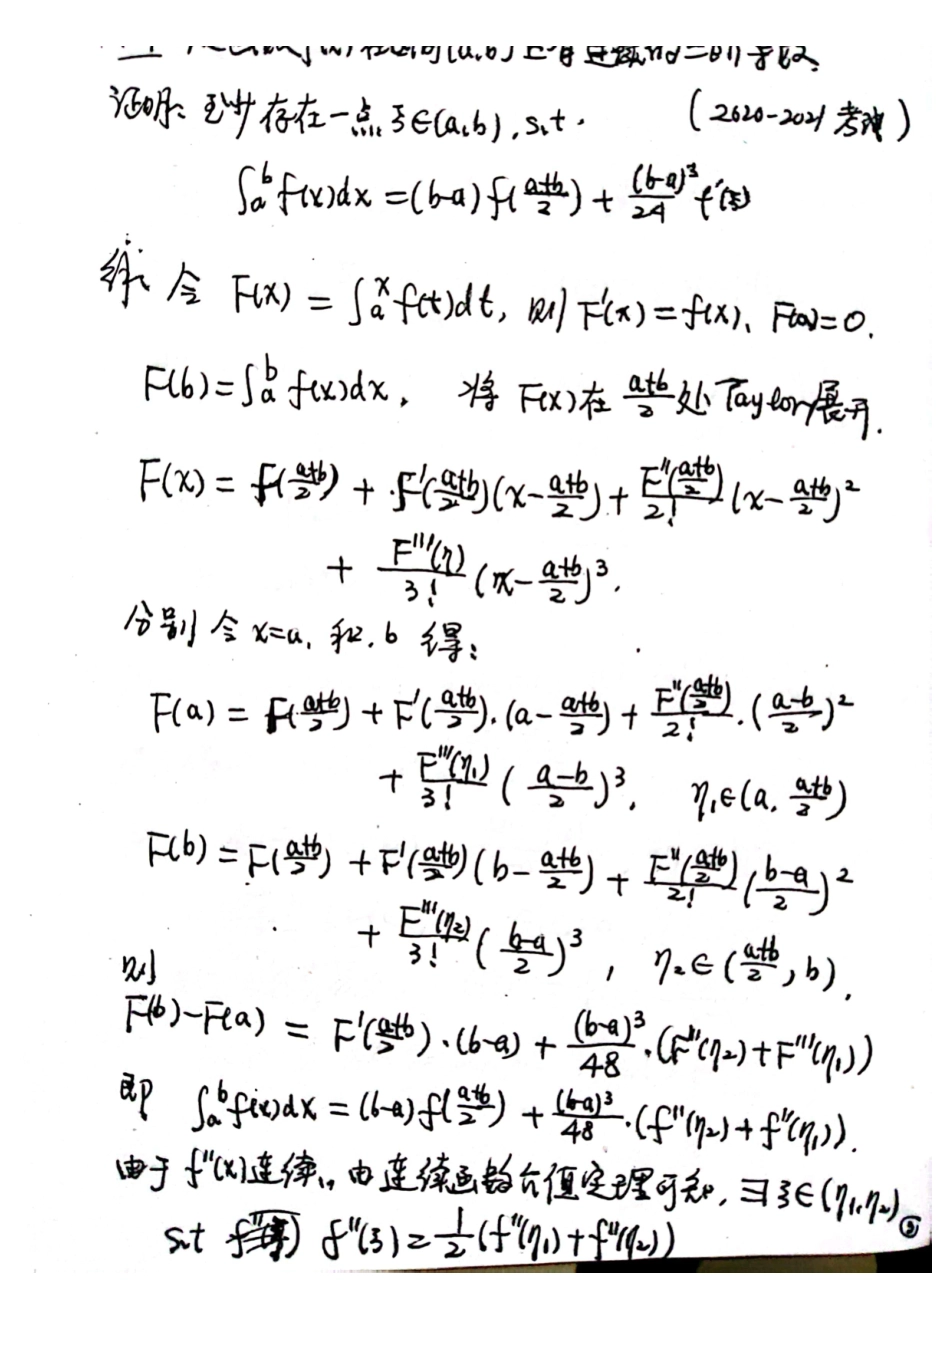 在区间[a,b]上有连续的二阶导数.
证明: 至少存在一点 ξ∈(a,b), s.t. (2020-2021考试)
∫_a^b f(x)dx = (b-a) f((a+b)/2) + (b-a)³/24 f''(ξ)
令 F(x) = ∫_a^x f(t)dt, 则 F'(x) = f(x), F(a)=0.
F(b) = ∫_a^b f(x)dx, 将 F(x) 在 (a+b)/2 处 Taylor 展开.
F(x) = F((a+b)/2) + F'((a+b)/2)(x-(a+b)/2) + F''((a+b)/2)/2! (x-(a+b)/2)²
+ F'''(η)/3! (x-(a+b)/2)³.
分别令 x=a, 和 b 得:
F(a) = F((a+b)/2) + F'((a+b)/2)·(a-(a+b)/2) + F''((a+b)/2)/2!·((a-b)/2)²
+ F'''(η₁)/3! ((a-b)/2)³, η₁∈(a, (a+b)/2)
F(b) = F((a+b)/2) + F'((a+b)/2)(b-(a+b)/2) + F''((a+b)/2)/2! ((b-a)/2)²
+ F'''(η₂)/3! ((b-a)/2)³, η₂∈((a+b)/2, b).
则
F(b)-F(a) = F'((a+b)/2)·(b-a) + (b-a)³/48·(F'''(η₂)+F'''(η₁))
即 ∫_a^b f(x)dx = (b-a)f((a+b)/2) + (b-a)³/48·(f''(η₂)+f''(η₁)).
由于 f''(x)连续, 由连续函数介值定理可知, ∃ξ∈(η₁,η₂)
s.t f''(ξ) = 1/2 (f''(η₁)+f''(η₂))